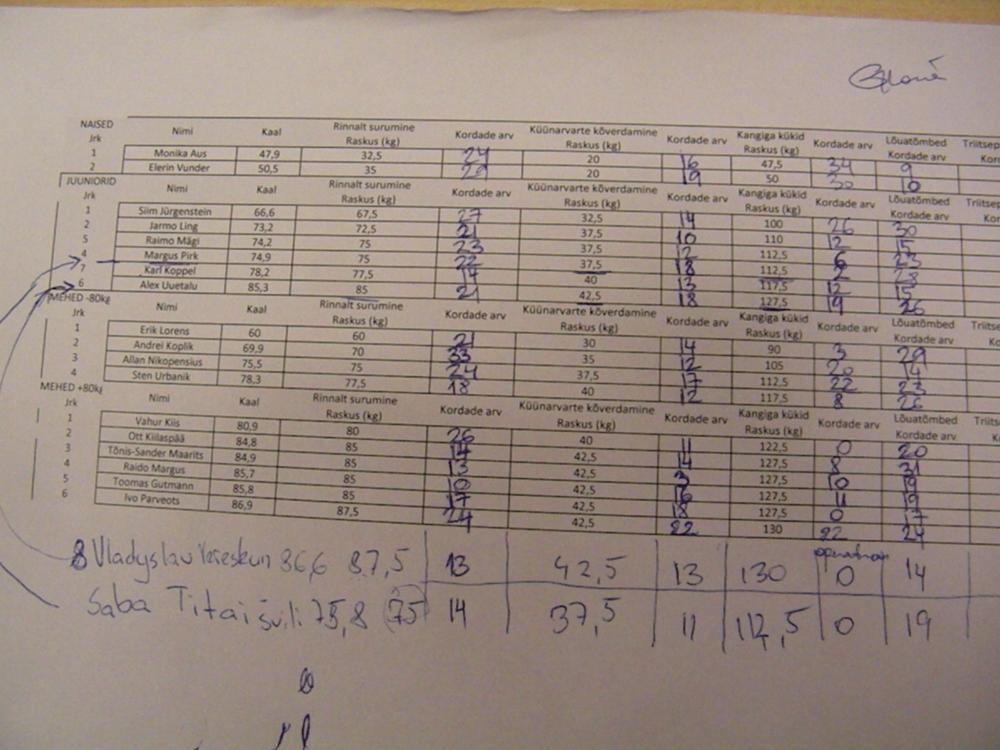 NAISED
Jrk Nimi Kaal Rinnalt surumine Raskus (kg) Kordade arv Küünarvarte kõverdamine Raskus (kg) Kordade arv Kangiga kükid Raskus (kg) Kordade arv Lõuatõmbed Kordade arv Triitsep
1 Monika Aus 47,9 32,5 24 20 16 47,5 34 9
2 Elerin Vunder 50,5 35 29 20 19 50 30 10
JUUNIORID
Jrk Nimi Kaal Rinnalt surumine Raskus (kg) Kordade arv Küünarvarte kõverdamine Raskus (kg) Kordade arv Kangiga kükid Raskus (kg) Kordade arv Lõuatõmbed Kordade arv Triitsep
1 Siim Jürgenstein 66,6 67,5 27 32,5 14 100 26 30
2 Jarmo Ling 73,2 72,5 21 37,5 10 110 12 15
5 Raimo Mägi 74,2 75 23 37,5 12 112,5 6 23
4 Margus Pirk 74,9 75 22 37,5 18 112,5 2 28
7 Karl Koppel 78,2 77,5 14 40 13 117,5 12 15
6 Alex Uuetalu 85,3 85 21 42,5 18 127,5 19 26
MEHED -80kg
Jrk Nimi Kaal Rinnalt surumine Raskus (kg) Kordade arv Küünarvarte kõverdamine Raskus (kg) Kordade arv Kangiga kükid Raskus (kg) Kordade arv Lõuatõmbed Kordade arv Triitse
1 Erik Lorens 60 60 21 30 14 90 3 29
2 Andrei Koplik 69,9 70 33 35 12 105 20 14
3 Allan Nikopensius 75,5 75 24 37,5 17 112,5 22 23
4 Sten Urbanik 78,3 77,5 18 40 12 117,5 8 26
MEHED +80kg
Jrk Nimi Kaal Rinnalt surumine Raskus (kg) Kordade arv Küünarvarte kõverdamine Raskus (kg) Kordade arv Kangiga kükid Raskus (kg) Kordade arv Lõuatõmbed Kordade arv Triits
1 Vahur Kiis 80,9 80 26 40 11 122,5 0 20
2 Ott Kiilaspää 84,8 85 42,5 14 127,5 8 31
3 Tõnis-Sander Maarits 84,9 85 13 42,5 127,5 10
4 Raido Margus 85,7 85 10 42,5 16 127,5 11
5 Toomas Gutmann 85,8 85 17 42,5 18 127,5 0 17
6 Ivo Parveots 86,9 87,5 24 42,5 22 130 22 24
8 Vladyslav 86,6 87,5 13 42,5 13 130 0 14
Saba Titaišvili 75,8 (75) 14 37,5 11 112,5 0 19